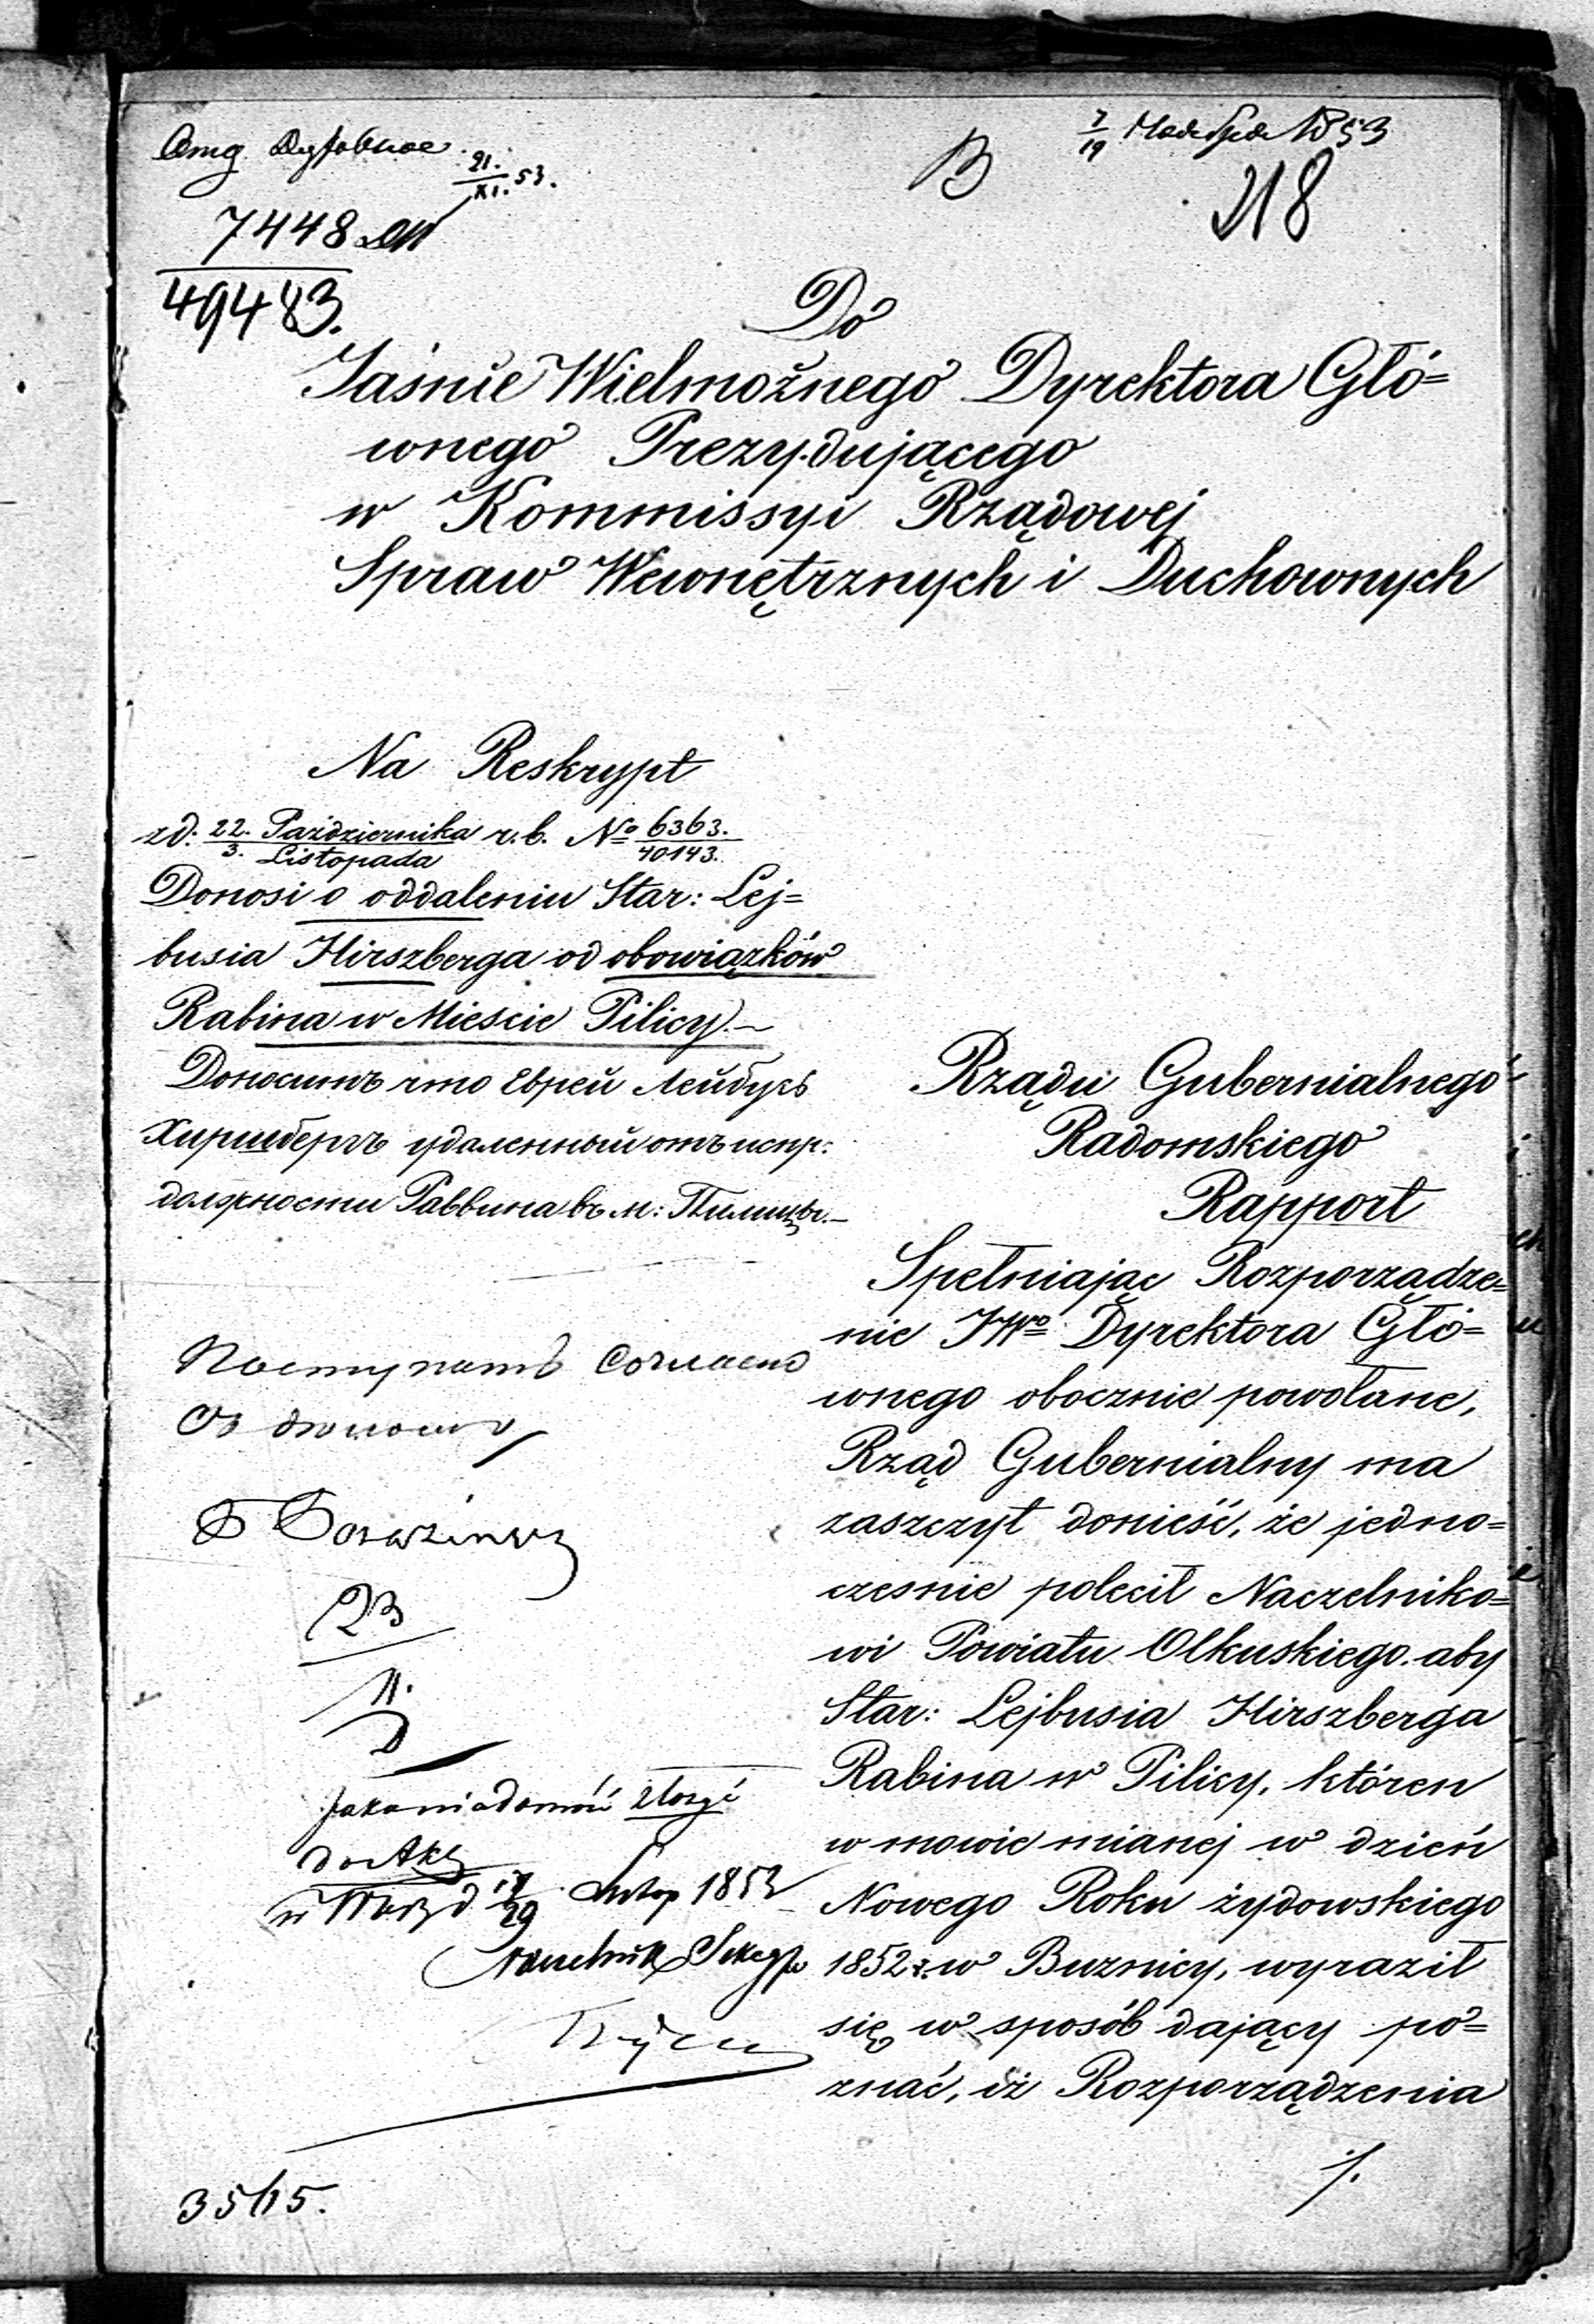 21. / XI. 53.
7448
49483.
B
7/19 1853
218
Do
Jaśnie Wielmożnego Dyrektora Głó=
wnego Prezydującego
w Kommissyi Rządowej
Spraw Wewnętrznych i Duchownych
Na Reskrypt
zd. 22. Października / 3. Listopada r. b. No 6363. / 40143.
Donosi o oddaleniu Star: Lej=
busia Hirszberga od obowiązków
Rabina w Mieście Pilicy.–
Доноситъ что Еврей Лейбусь
Хиршбергъ удаленный отъ испр:
должности Раввина въ м: Пилицы.–
Поступить согласно
23
11.
Jako wiadomość złożyć
do Akt
w Warsz d 17/29 Listop 1853
Naczelnik Sekcyi
3515.
Rządu Gubernialnego
Radomskiego
Rapport
Spełniając Rozporządze=
nie JWo Dyrektora Głó=
wnego obocznie powołane,
Rząd Gubernialny ma
zaszczyt donieść, że jedno=
cześnie polecił Naczelniko=
wi Powiatu Olkuskiego. aby
Star: Lejbusia Hirszberga
Rabina w Pilicy, któren
w mowie mianej w dzień
Nowego Roku żydowskiego
1852 r. w Buznicy, wyraził
się w sposób dający po=
znać, iż Rozporządzenia
./.